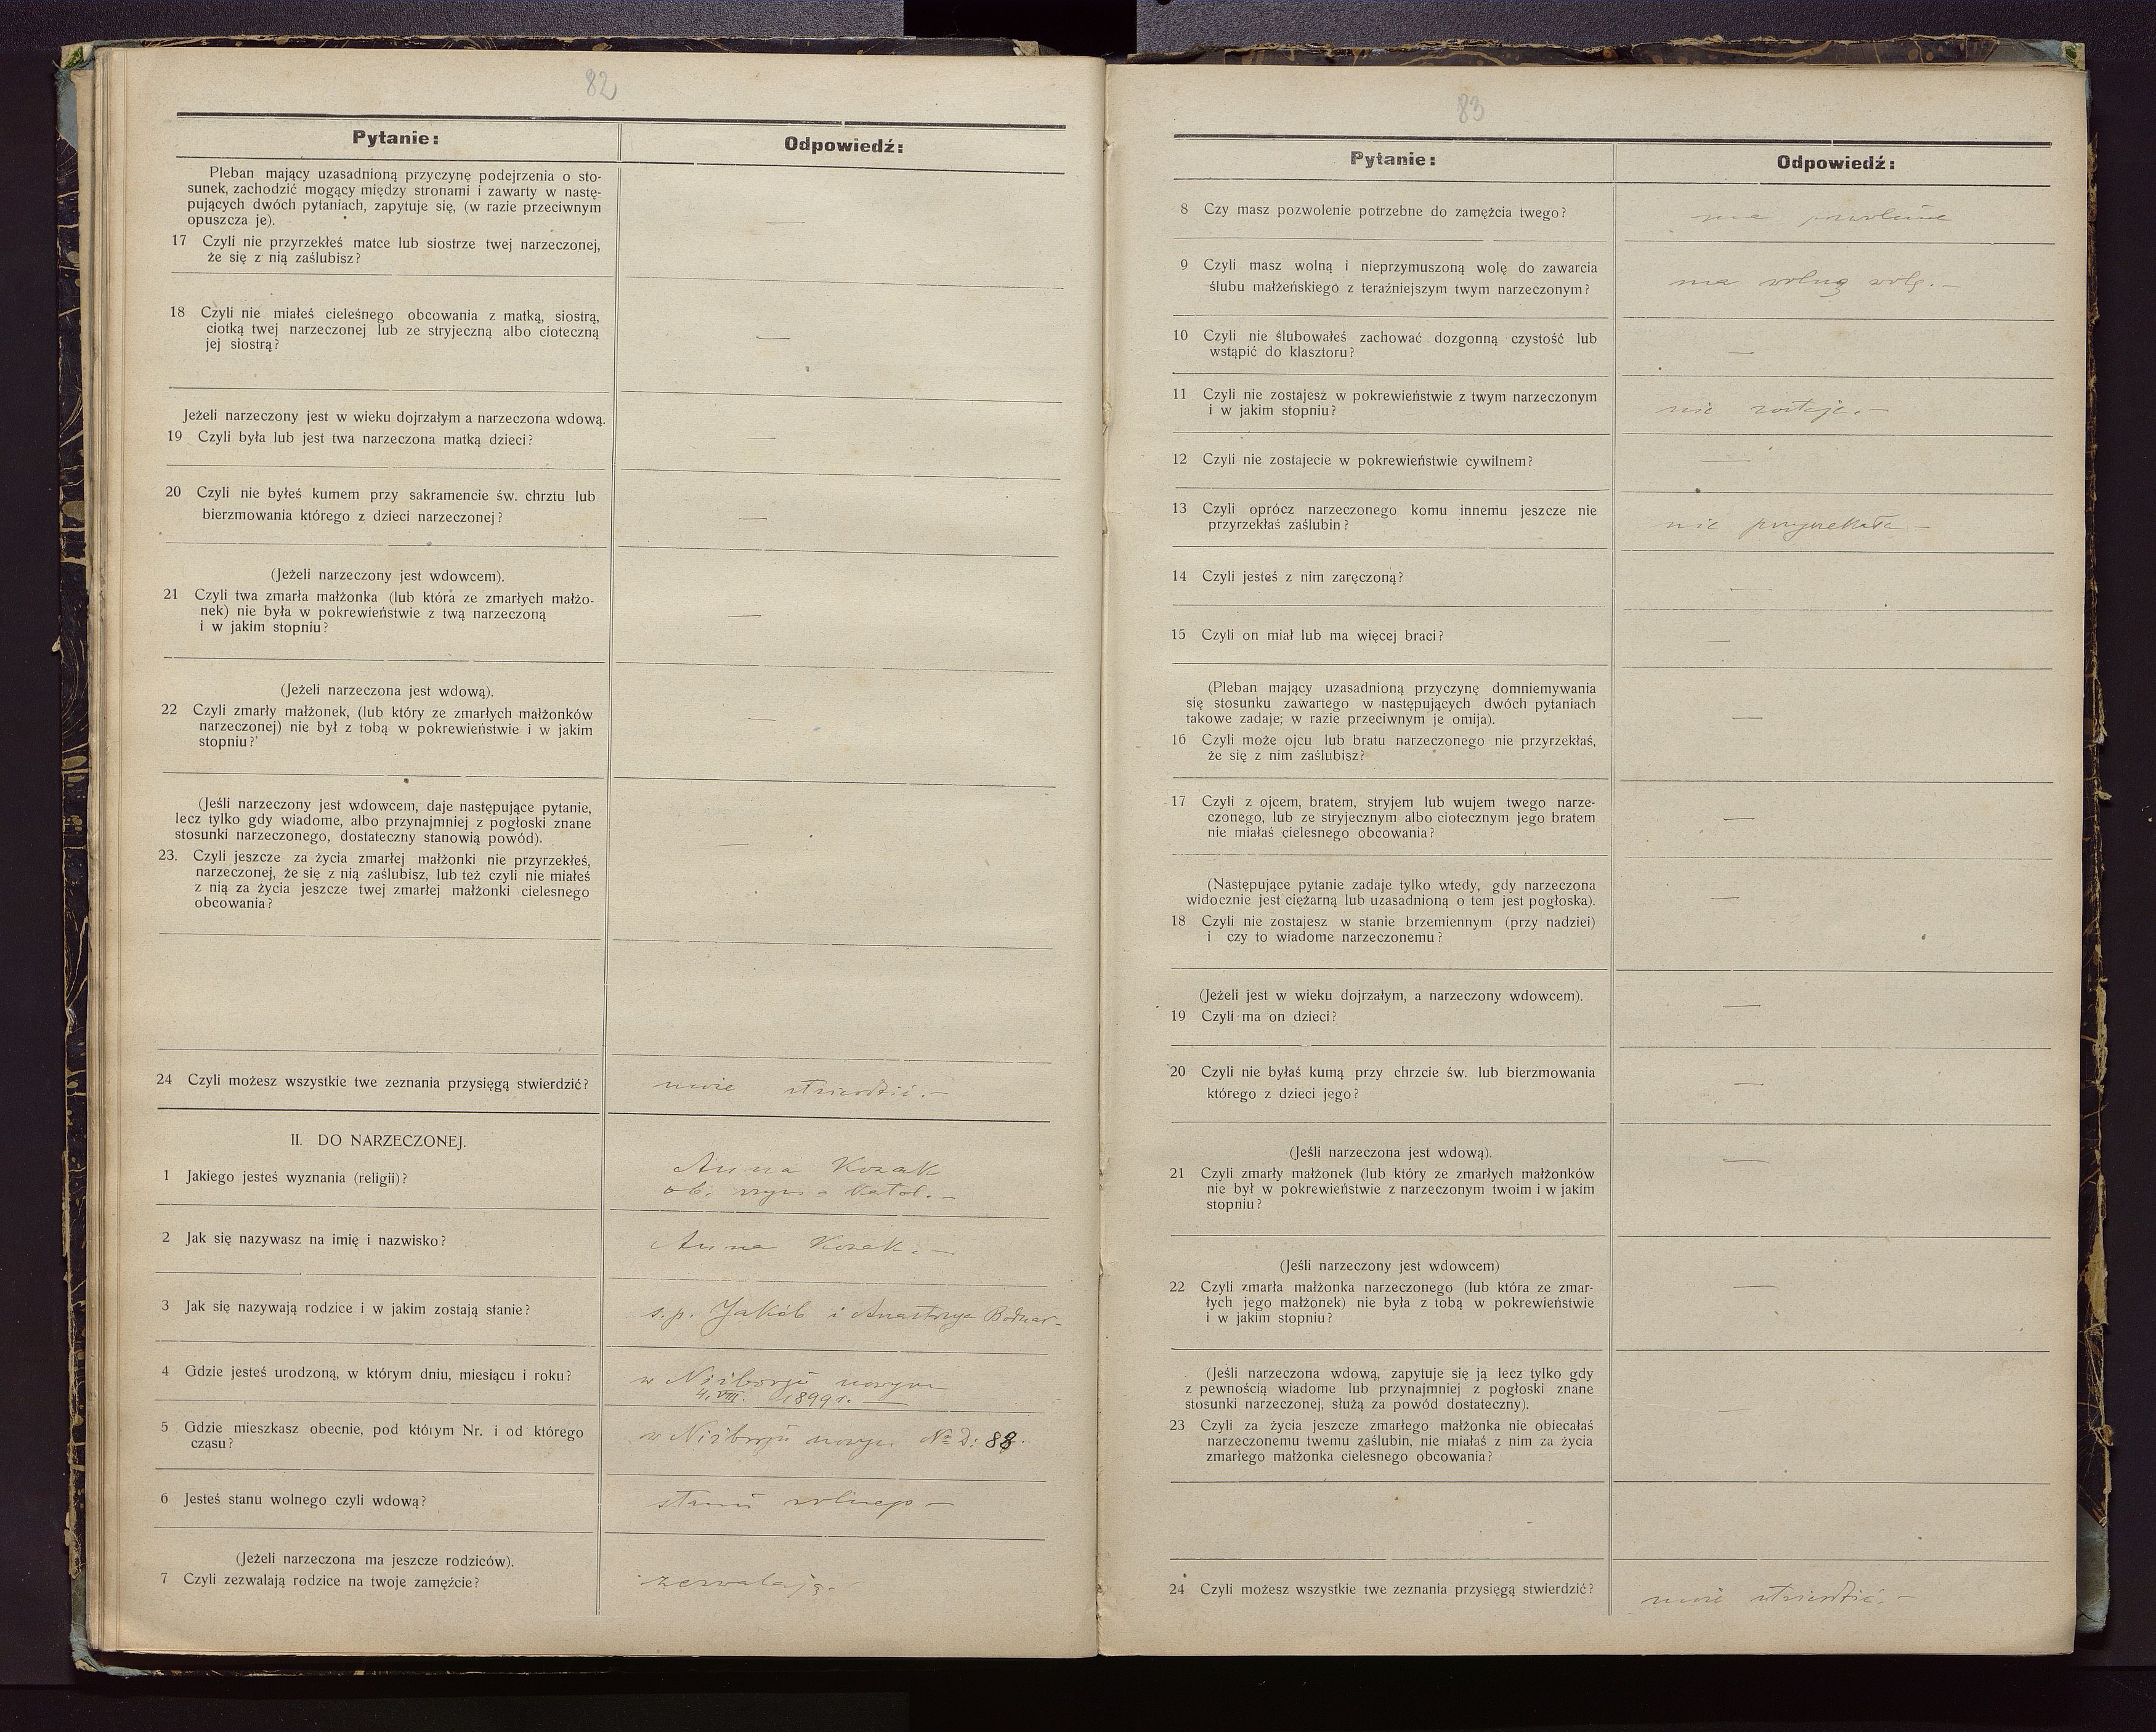 82
Pytanie:
Odpowiedź:
Pleban mający uzasadnioną przyczynę podejrzenia o sto-
sunek, zachodzić mogący między stronami i zawarty w nastę-
pujących dwóch pytaniach, zapytuje się, (w razie przeciwnym
opuszcza je).
—
17 Czyli nie przyrzekłeś matce lub siostrze twej narzeczonej,
że się z nią zaślubisz?
18 Czyli nie miałeś cieleśnego obcowania z matką, siostrą,
ciotką twej narzeczonej lub ze stryjeczną albo cioteczną
jej siostrą?
—
Jeżeli narzeczony jest w wieku dojrzałym a narzeczona wdową.
19 Czyli była lub jest twa narzeczona matką dzieci?
—
20 Czyli nie byłeś kumem przy sakramencie św. chrztu lub
bierzmowania którego z dzieci narzeczonej?
—
(Jeżeli narzeczony jest wdowcem).
21 Czyli twa zmarła małżonka (lub która ze zmarłych małżo-
nek) nie była w pokrewieństwie z twą narzeczoną
i w jakim stopniu?
—
(Jeżeli narzeczona jest wdową).
22 Czyli zmarły małżonek, (lub który ze zmarłych małżonków
narzeczonej) nie był z tobą w pokrewieństwie i w jakim
stopniu?
—
(Jeśli narzeczony jest wdowcem, daje następujące pytanie,
lecz tylko gdy wiadome, albo przynajmniej z pogłoski znane
stosunki narzeczonego, dostateczny stanowią powód).
23. Czyli jeszcze za życia zmarłej małżonki nie przyrzekłeś,
narzeczonej, że się z nią zaślubisz, lub też czyli nie miałeś
z nią za życia jeszcze twej zmarłej małżonki cielesnego
obcowania?
—
24 Czyli możesz wszystkie twe zeznania przysięgą stwierdzić?
może stwierdzić. —
II. DO NARZECZONEJ.
1 Jakiego jesteś wyznania (religii)?
Anna Kozak
ob. rzym - katol. —
2 Jak się nazywasz na imię i nazwisko?
Anna Kozak. —
3 Jak się nazywają rodzice i w jakim zostają stanie?
s. p. Jakób i Anastazya Bodnar —
4 Gdzie jesteś urodzoną, w którym dniu, miesiącu i roku?
w Niżborgu nowym
4. VIII. 1899 r. —
5 Gdzie mieszkasz obecnie, pod którym Nr. i od którego
czasu?
w Niżborgu nowym No D: 88.
6 Jesteś stanu wolnego czyli wdową?
stanu wolnego —
(Jeżeli narzeczona ma jeszcze rodziców).
7 Czyli zezwalają rodzice na twoje zamęźcie?
zezwalają. —
83
Pytanie:
Odpowiedź:
8 Czy masz pozwolenie potrzebne do zamężcia twego?
9 Czyli masz wolną i nieprzymuszoną wolę do zawarcia
ślubu małżeńskiego z teraźniejszym twym narzeczonym?
ma wolną wolę. —
10 Czyli nie ślubowałeś zachować dozgonną czystość lub
wstąpić do klasztoru?
—
11 Czyli nie zostajesz w pokrewieństwie z twym narzeczonym
i w jakim stopniu?
nie zostaje. —
12 Czyli nie zostajecie w pokrewieństwie cywilnem?
—
13 Czyli oprócz narzeczonego komu innemu jeszcze nie
przyrzekłaś zaślubin?
nie przyrzekała —
14 Czyli jesteś z nim zaręczoną?
—
15 Czyli on miał lub ma więcej braci?
—
(Pleban mający uzasadnioną przyczynę domniemywania
się stosunku zawartego w następujących dwóch pytaniach
takowe zadaje; w razie przeciwnym je omija).
—
16 Czyli może ojcu lub bratu narzeczonego nie przyrzekłaś,
że się z nim zaślubisz?
17 Czyli z ojcem, bratem, stryjem lub wujem twego narze-
czonego, lub ze stryjecznym albo ciotecznym jego bratem
nie miałaś cielesnego obcowania?
—
(Następujące pytanie zadaje tylko wtedy, gdy narzeczona
widocznie jest ciężarną lub uzasadnioną o tem jest pogłoska).
—
18 Czyli nie zostajesz w stanie brzemiennym (przy nadziei)
i czy to wiadome narzeczonemu?
(Jeżeli jest w wieku dojrzałym, a narzeczony wdowcem).
—
19 Czyli ma on dzieci?
20 Czyli nie byłaś kumą przy chrzcie św. lub bierzmowania
którego z dzieci jego?
—
(Jeśli narzeczona jest wdową).
—
21 Czyli zmarły małżonek (lub który ze zmarłych małżonków
nie był w pokrewieństwie z narzeczonym twoim i w jakim
stopniu?
(Jeśli narzeczony jest wdowcem)
22 Czyli zmarła małżonka narzeczonego (lub która ze zmar-
łych jego małżonek) nie była z tobą w pokrewieństwie
i w jakim stopniu?
—
(Jeśli narzeczona wdową, zapytuje się ją lecz tylko gdy
z pewnością wiadome lub przynajmniej z pogłoski znane
stosunki narzeczonej, służą za powód dostateczny).
—
23 Czyli za życia jeszcze zmarłego małżonka nie obiecałaś
narzeczonemu twemu zaślubin, nie miałaś z nim za życia
zmarłego małżonka cielesnego obcowania?
24 Czyli możesz wszystkie twe zeznania przysięgą stwierdzić?
może stwierdzić. —